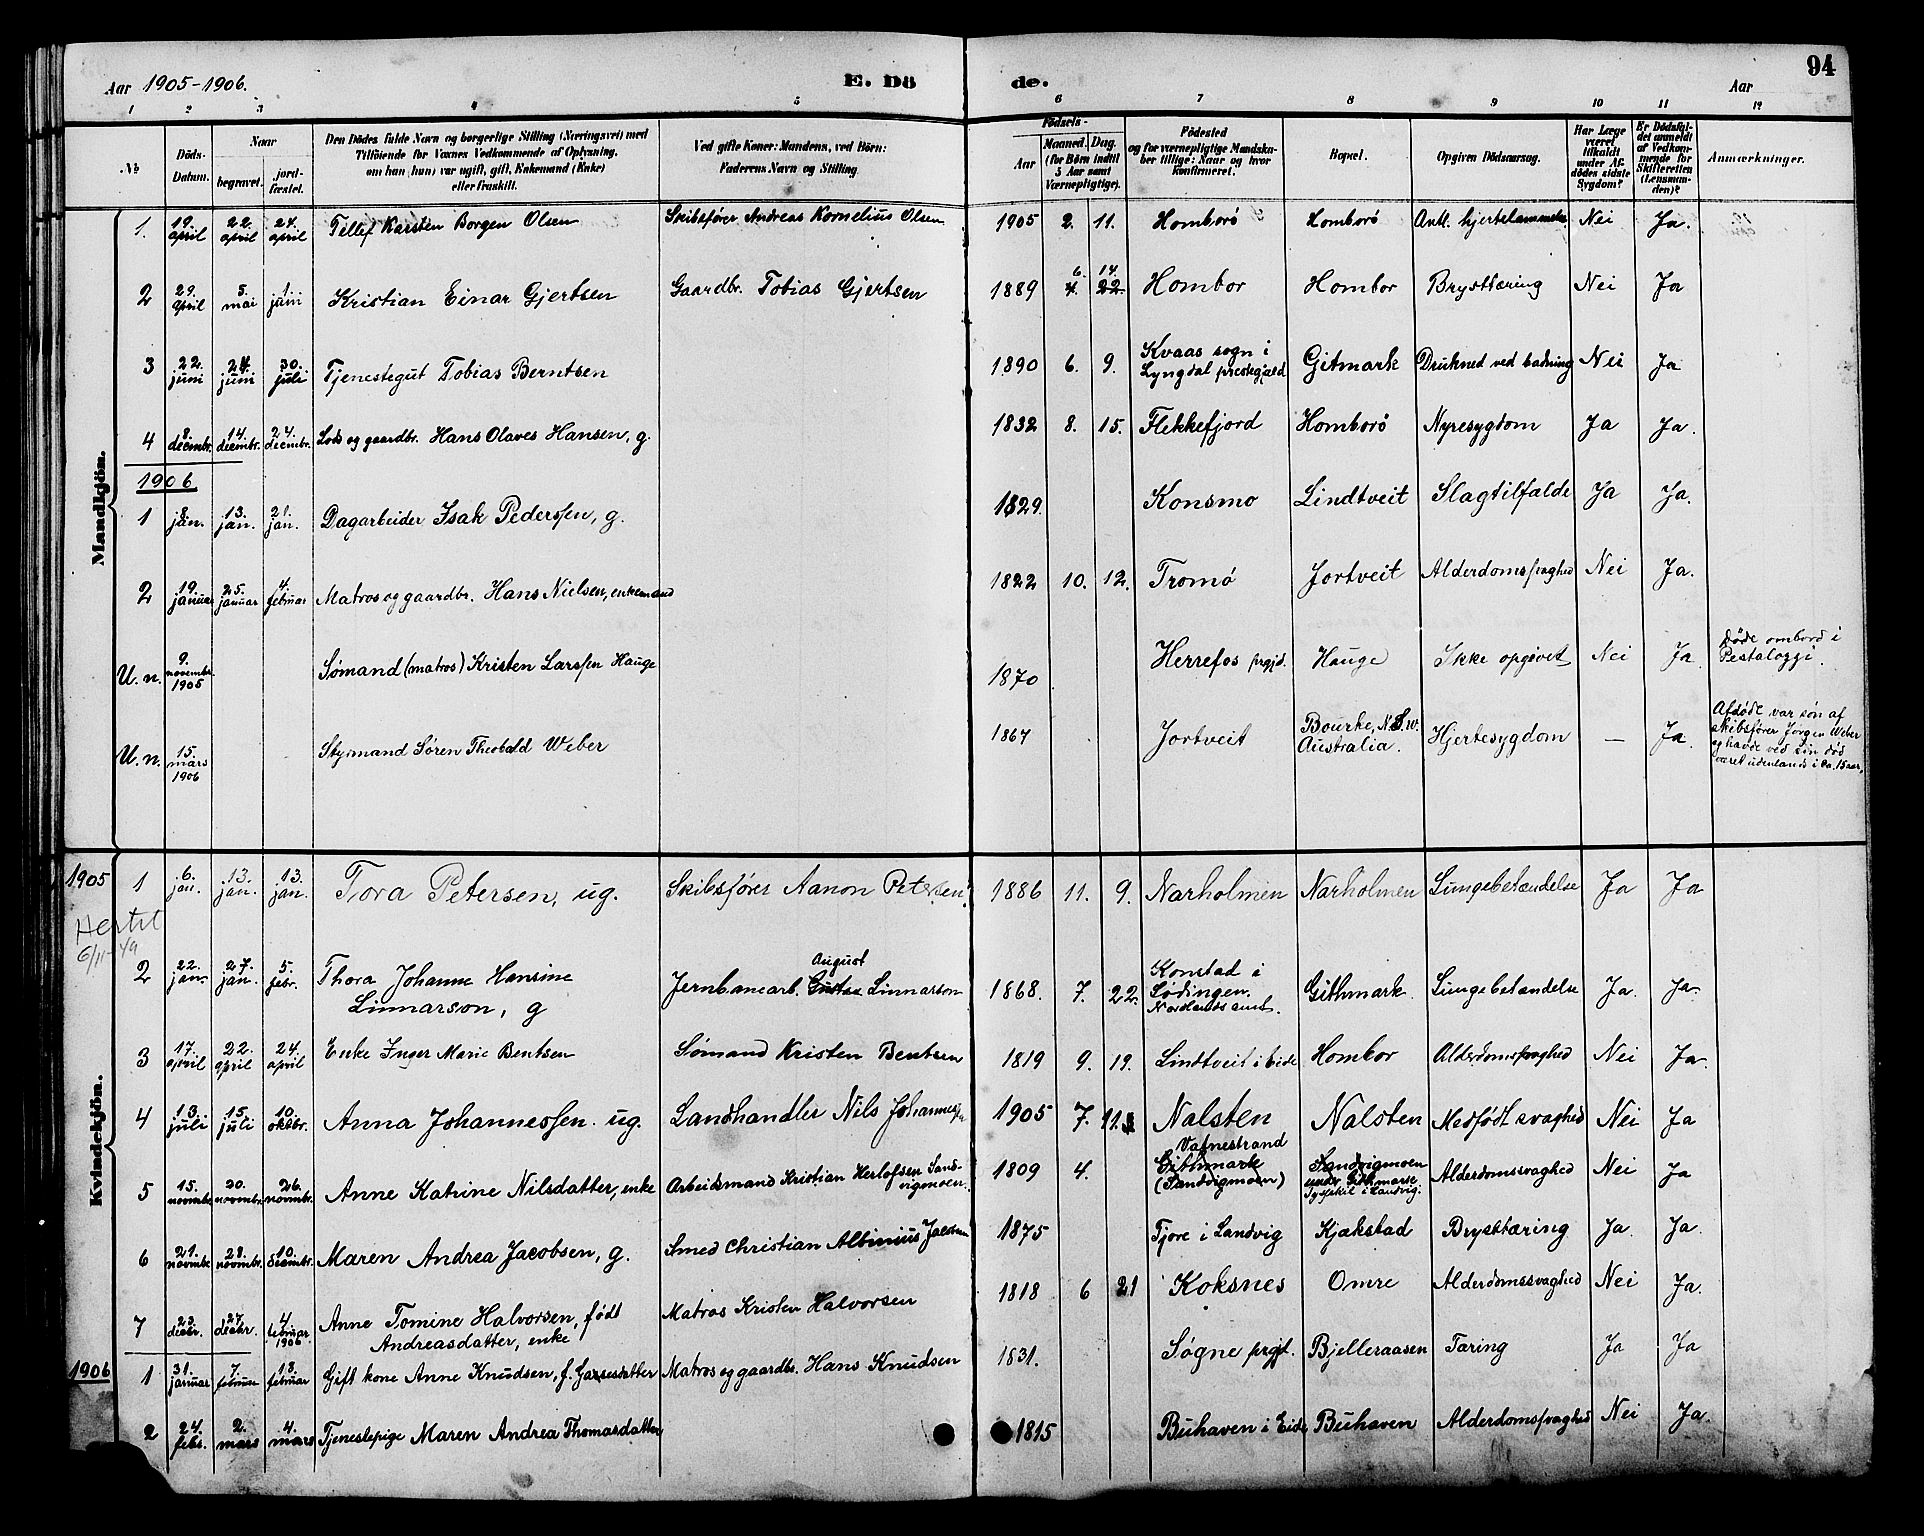 Aar 1905-1906.
E. Dö
de.
Aar
94
1 2 3 4 5 6 7 8 9 10 11 12
No
Döds-
Datum.
Naar
begravet.
jord-
fæstet.
Den Dödes fulde Navn og borgerlige Stilling (Næringsvei) med
Tilföiende for Voxnes Vedkommende af Oplysning,
om han (hun) var ugift, gift, Enkemand (Enke)
eller fraskilt.
Ved gifte Koner: Mandens, ved Börn:
Faderens Navn og Stilling
Födsels-
Aar
Maaned.
Dag.
(for Börn indtil
5 Aar samt
Værnepligtige).
Födested
og for værnepligtige Mandska-
ber tillige: Naar og hvor
konfirmeret.
Bopæl.
Opgiven Dödsaarsag.
Har Læge
været
tilkaldt
under Af-
dödes sidste
Sygdom?
Er Dödsfal-
det anmeldt
af Vedkom-
mende for
Skifteretten
(Lensman-
den)?
Anmærkninger.
Mandkjön.
1. 19. april 22. april 24. april Tellef Karsten Borgen Olsen Skibsfører Andreas Kornelius Olsen 1905 2. 11. Homborö Homborö Antl. hjertelammelse Nei Ja.
2 29. april 5. mai 1. juni Kristian Einar Gjertsen Gaardbr. Tobias Gjertsen 1889 6. 4. 14. 22. Hombor Hombor Brysttæring Nei Ja
3 22. juni 24. juni 30. juli Tjenestegut Tobias Berntsen 1890 6. 9. Kvaas sogn i
Lyngdal prestegjæld Gitmark Drukned ved badning Nei Ja
4 8. decembr. 14. decembr. 24. decembr. Lods og gaardbr. Hans Olaves Hansen, g. 1832 8. 15. Flekkefjord Homborö Nyresygdom Ja Ja.
1906
1 8. jan. 13. jan. 21. jan. Dagarbeider Isak Pederssen, g. 1829. Konsmo Lindtveit Slagtilfælde Ja Ja.
2 19. januar 25. januar 4. februar Matros og gaardbr. Hans Nielsen, enkemand 1822 10. 12. Tromö Jortveit Alderdomssvaghed Nei Ja.
U. n. 9. novembr. 1905 Sømand (matros) Kristen Larssen Hauge 1870 Herrefos prgjd. Hauge Ikke opgivet Nei Ja. Døde ombord i
Pestalozzi.
U. n. 15. mars 1906 Styrmand Sören Theobald Weber 1867 Jortveit Bourke, N.S.W.
Australia. Hjertesygdom — Ja. Afdöde var sön af
skibsförer Jörgen Weber
og havde ved sin död
været udenlands i ca. 15 aar.
Kvindekjön.
1905
1 6. jan. 13. jan. 13. jan. Tora Petersen, ug. Skibsförer Aanon Petersen. 1886 11. 9. Narholmen Narholmen Lungebetændelse Ja Ja
6/11-49
2 22. jan. 27. jan. 5. febr. Thora Johanne Hansine
Linnarson, g Jernbanearb. August
Gustav Linnarson 1868. 7. 22. Konstad i
Lödingen.
Nordlands amt. Githmark Lungebetændelse Ja. Ja.
3 17. april 22. april 24. april Enke Inger Marie Bentsen Sömand Kristen Bentsen 1819 9. 19. Lindtveit i Eide Hombor Alderdomssvaghed Nei Ja.
4 13. juli 15. juli 10. oktbr. Anna Johannessen. ug. Landhandler Nils Johannessen 1905 7. 11. Nalsten Nalsten Medfödt svaghed Nei Ja
5 15. novembr. 20. novembr. 26. novembr. Anne Katrine Nilsdatter, enke Arbeidsmand Kristian Herlofsen Sand-
vigmoen. 1809 4. Vafnestrand
Githmark
(Sandvigmoen) Sandvigmoen
under Githmark
i Landvig. Alderdomssvaghed Nei Ja
6 21. novembr. 28. novembr. 10. decembr. Maren Andrea Jacobsen, g. Smed Christian Albinius Jacobsen 1875 Tjore i Landvig Kjækstad Brysttæring Ja. Ja.
7 23. decbr. 27. decbr. 4. februar 1906 Anne Tomine Halvorsen, født
Andreasdatter, enke Matros Kristen Halvorsen 1818 6 21 Koksnes Omre Alderdomssvaghed Nei Ja.
1906
1 31. januar 7. februar 18. februar Gift kone Anne Knudsen, f. Matros og gaardbr. Hans Knudsen 1831. Søgne prgjt. Bjelleraasen Tæring Ja Ja
2 24. febr. 2. mars 4. mars Tjenestepige Maren Andrea Thomasdatter 1815 Buhaven i Eide Buhaven Alderdomssvaghed Nei Ja.